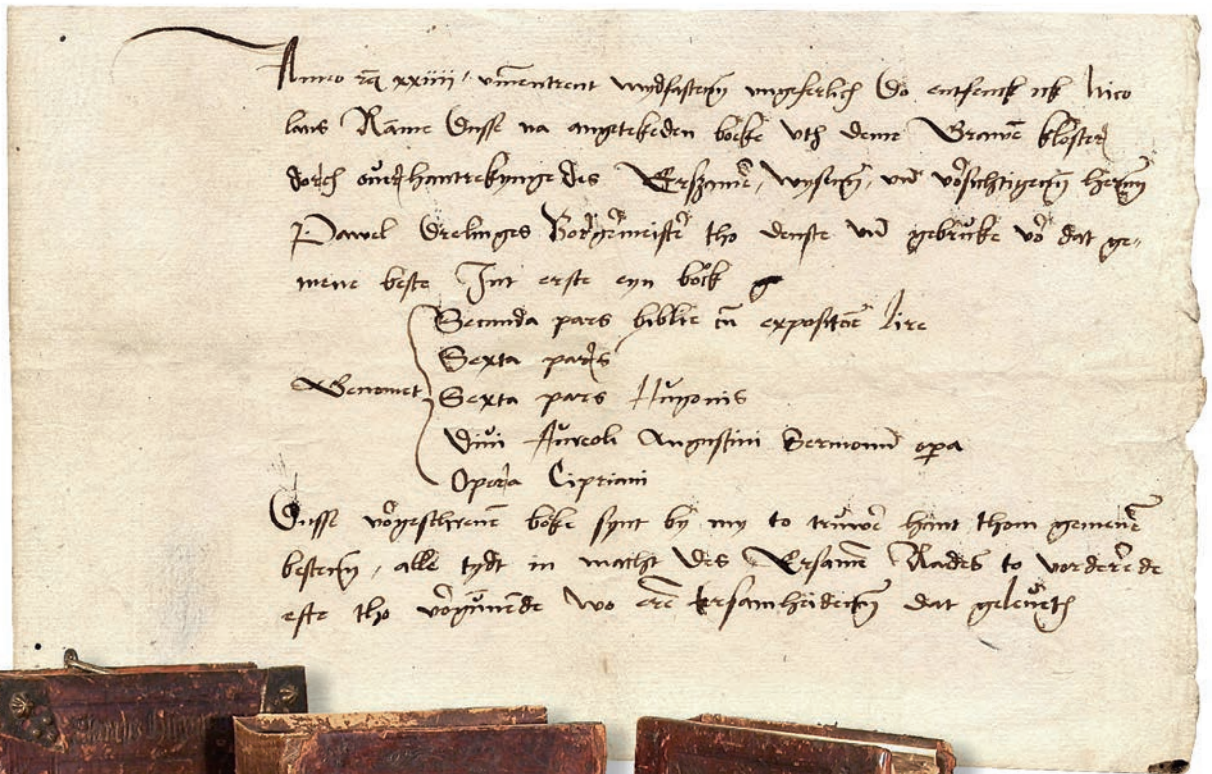 Anno xxiiii vmmentrent mydfasten vngeferlich Do entfenck ick Nico
laus Ramme Dusse na angetekeden boeke vth deme Grawen kloster
dorch ouerhantrekynge des Erszamen, wysen, vnd vorsichtigen heren
Pawel Drelinges Borgermeister tho denste vnd gebruke vor dat ge-
mene beste Int erste eyn boek
Secunda pars biblie cum expositione lire
Sexta pars
Sexta pars Hugonis
Diui Aureoli Augustini Sermonum opera
Opera Cipriani
Dusse vorgeschreuen boke synt by my to truwer hant thom gemenen
besten, alle tydt in macht des Ersamen Rades to vorderende
efte tho vorgunnende wo ere Ersamheiden dat geleueth